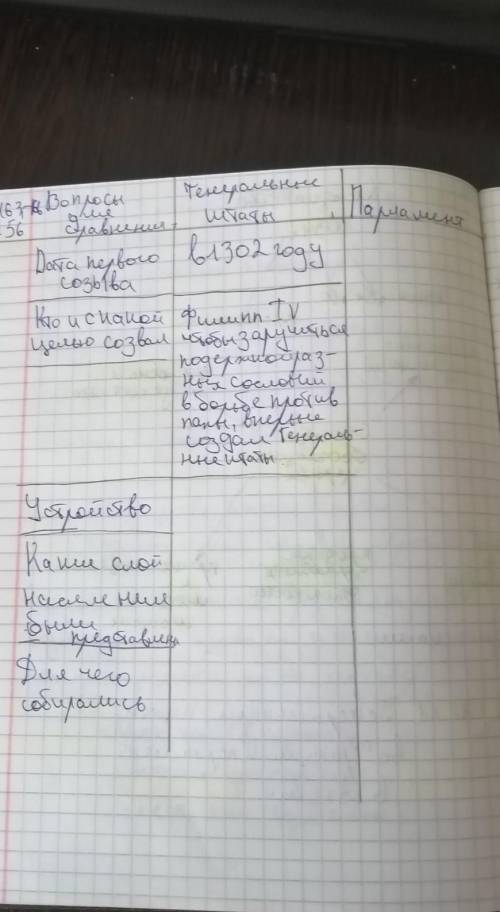 163 Вопросы
56 для
сравнения
Генеральные
штаты
Парламент
Дата первого
созыва
в 1302 году
Кто и с какой
целью созвал
Филипп IV
чтобы заручиться
подержкой раз-
ных сословий
в борьбе против
папы, впервые
создал Генераль-
ные штаты
Устройство
Какие слой
населения
были
представлены
Для чего
собирались